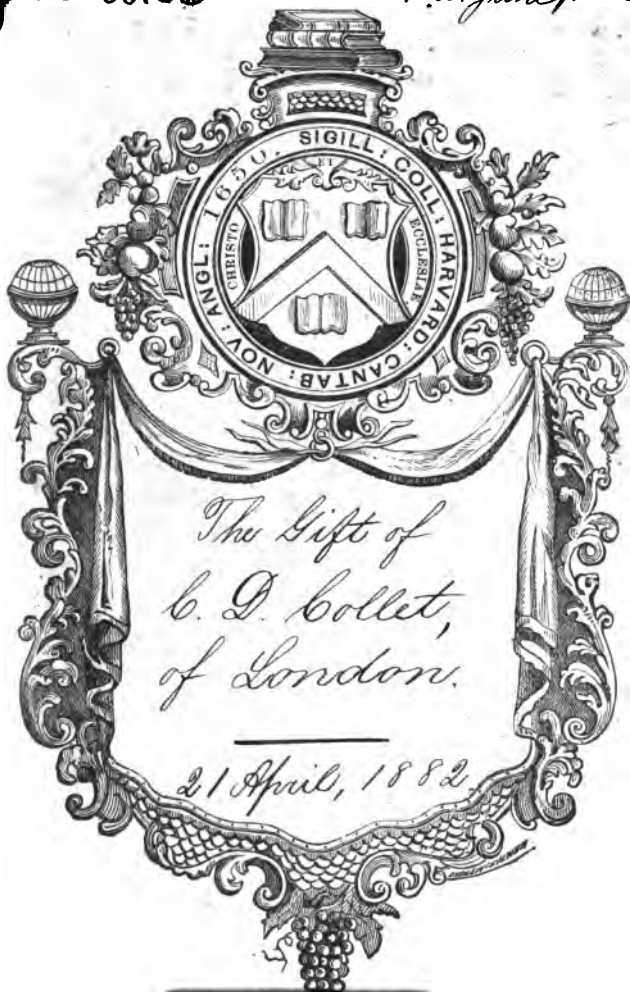 SIGILL: COLL: HARVARD: CANTAB: NOV: ANGL: 1650.
ET
CHRISTO
ECCLESIAE
The Gift of
C. D. Collet,
of London.
21 April, 1882.